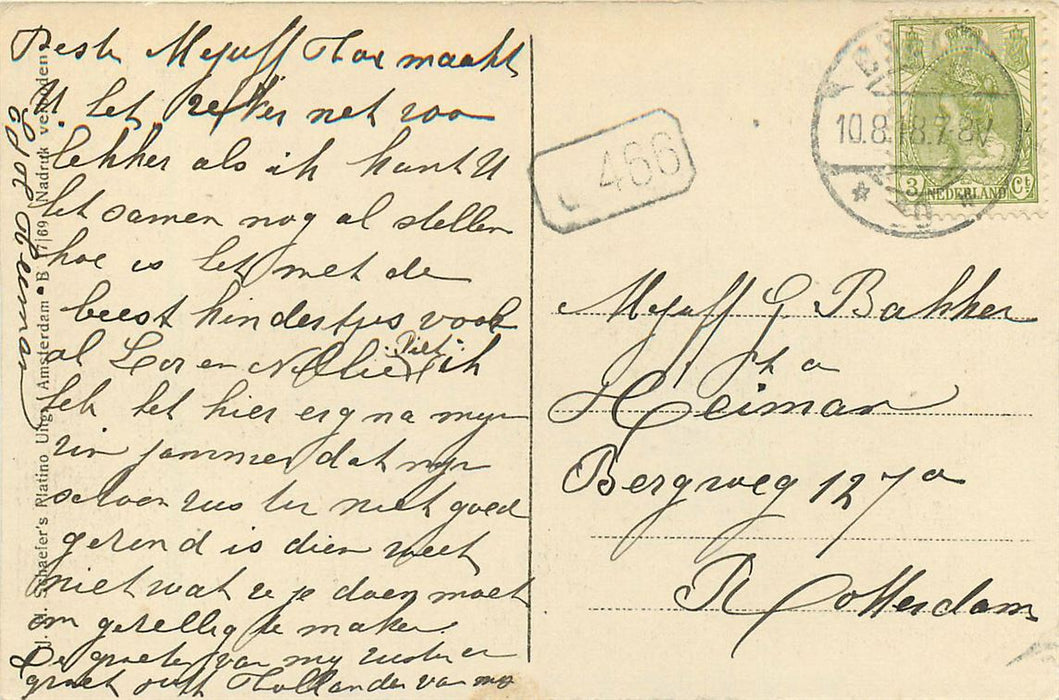 Beste Mejuff Hoe maakt
U het zeker net zoo
lekker als ik kunt U
het samen nog al stellen
hoe is het met de
beest kindertjes vooral
al Cor en Nellie Piet ik
heb het hier erg na mijn
zin jammer dat mijn
schoonzuster niet goed
gezond is dien weet
niet wat ze je doen moet
om gezellig te maken
De groeten van mij zuster en
groet juff Hollander van mij
J. H. Schaefer's Platino Uitg. Amsterdam B 7/69 Nadruk verboden
466
10.8.18.7-8V
3 NEDERLAND Ct
Mejuff G. Bakker
p/a
Heiman
Bergweg 127a
Rotterdam